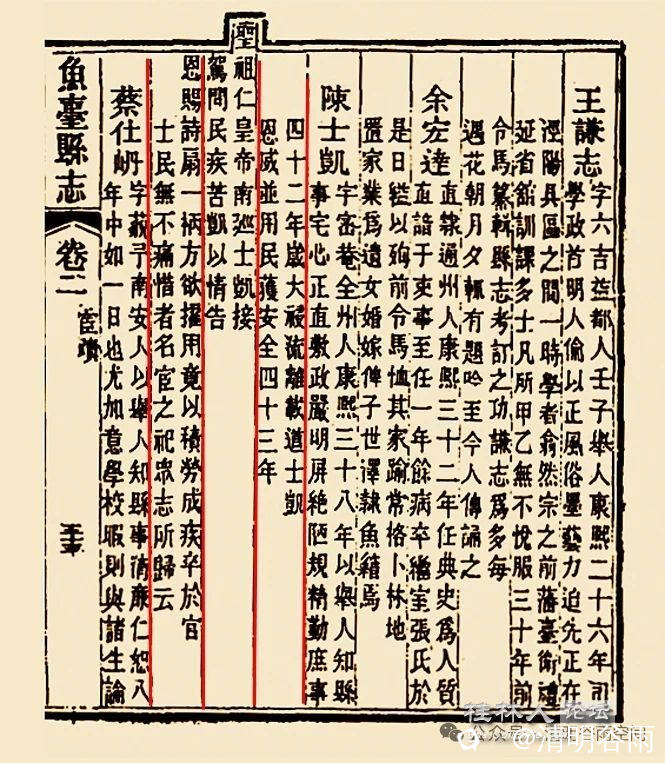 王謙志 字六吉益都人壬子舉人康熙二十六年司
學政首明人倫以正風俗墨藝力追先正在
涇陽具區之間一時學者翕然宗之前藩臺衛禮
延省舘訓課多士凡所甲乙無不悅服三十年前
令馬纂輯縣志考訂之功謙志爲多每
遇花朝月夕輒有題吟至今人傳誦之
余宏達 直隸通州人康熙三十二年任典史爲人質
直諳于吏事至任一年餘病卒繼室張氏於
是日縊以殉前令馬恤其家踰常格卜林地
置家業爲遺女婚嫁俾子世澤隸魚籍焉
陳士凱 字密菴全州人康熙三十八年以舉人知縣
事宅心正直敷政嚴明屏絶陋規精勤庶事
四十二年歲大祲流離載道士凱
恩威並用民獲安全四十三年
聖祖仁皇帝南廵士凱接
駕問民疾苦凱以情告
恩賜詩扇一柄方欲擢用竟以積勞成疾卒於官
士民無不痛惜者名宦之祀衆志所歸云
蔡仕舢 字菽南安人以舉人知縣事清廉仁恕八
年中如一日也尤加意學校暇則與諸生論
魚臺縣志 卷二 宦蹟
桂林人论坛
公众号
@清明谷雨